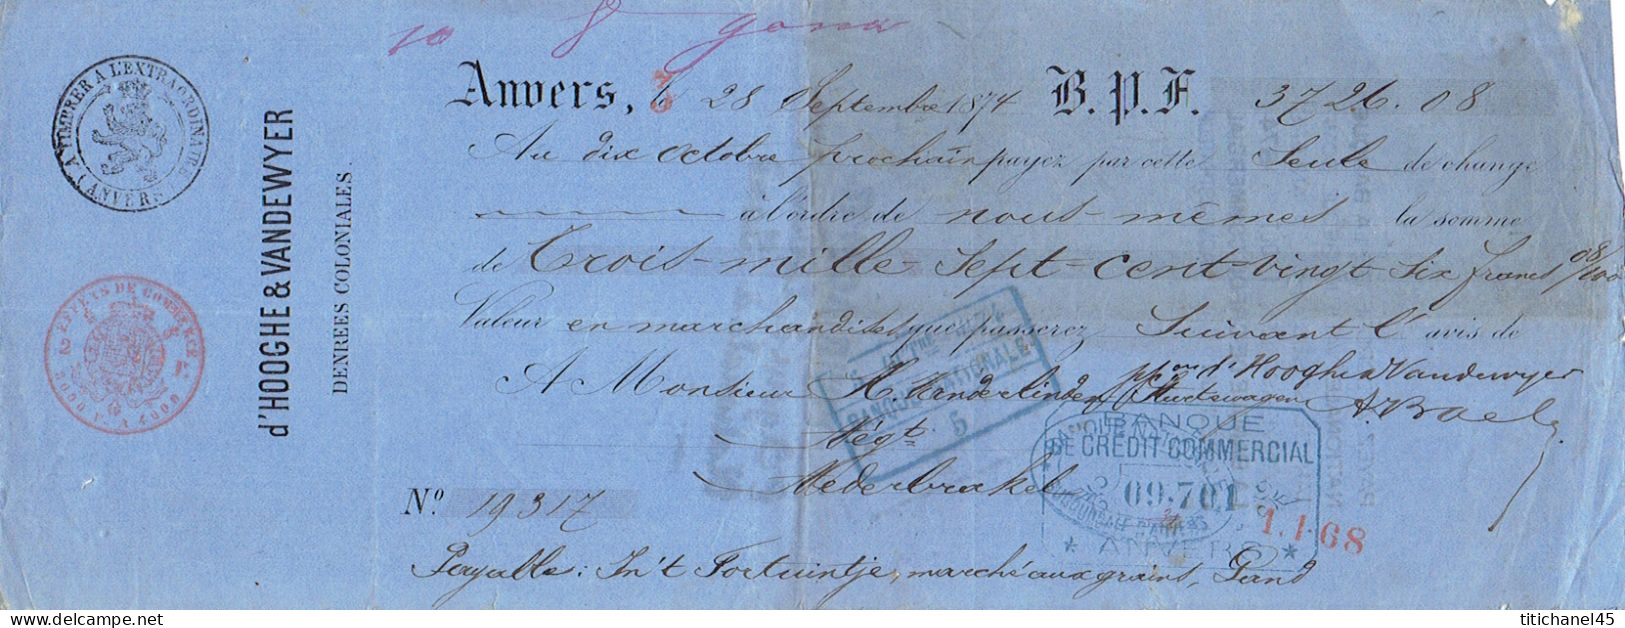 10 8
Anvers, 28 Septembre 1874 B. P. F. 3726.08
Au dix octobre prochain payez par cette Seule de change
à l'ordre de nous-mêmes la somme
de Trois-mille-Sept-cent-vingt six francs 08/100
Valeur en marchandises que passerez Suivant l' avis de
A Monsieur H. Vanderlinden
ppon d'Hooghe & Vandewyer
Négt
Nederbrakel
No. 19317
Payable: In't Fortuintje, marché aux grains, Gand
A TIMBRER A L'EXTRAORDINAIRE
(ANVERS)
EFFETS DE COMMERCE
d'HOOGHE & VANDEWYER
DENREES COLONIALES.
BANQUE NATIONALE
5
BANQUE
DE CRÉDIT COMMERCIAL
09.701
* ANVERS *
1.1.68
Delcampe.net
titichanel45